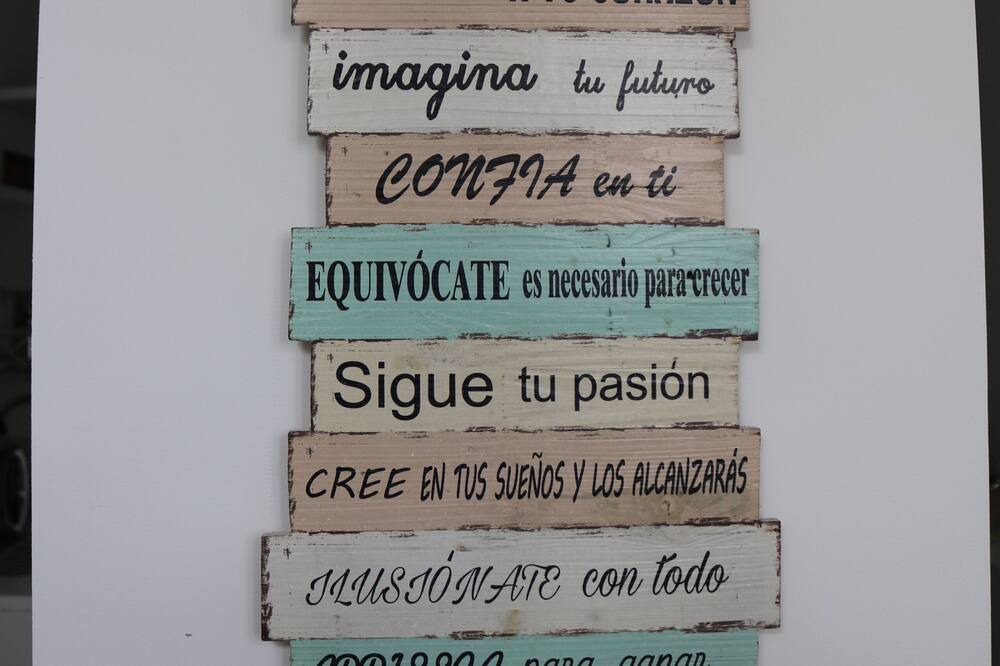 imagina tu futuro
CONFIA en ti
EQUIVÓCATE es necesario para crecer
Sigue tu pasión
CREE EN TUS SUEÑOS Y LOS ALCANZARÁS
ILUSIÓNATE con todo
para ganar